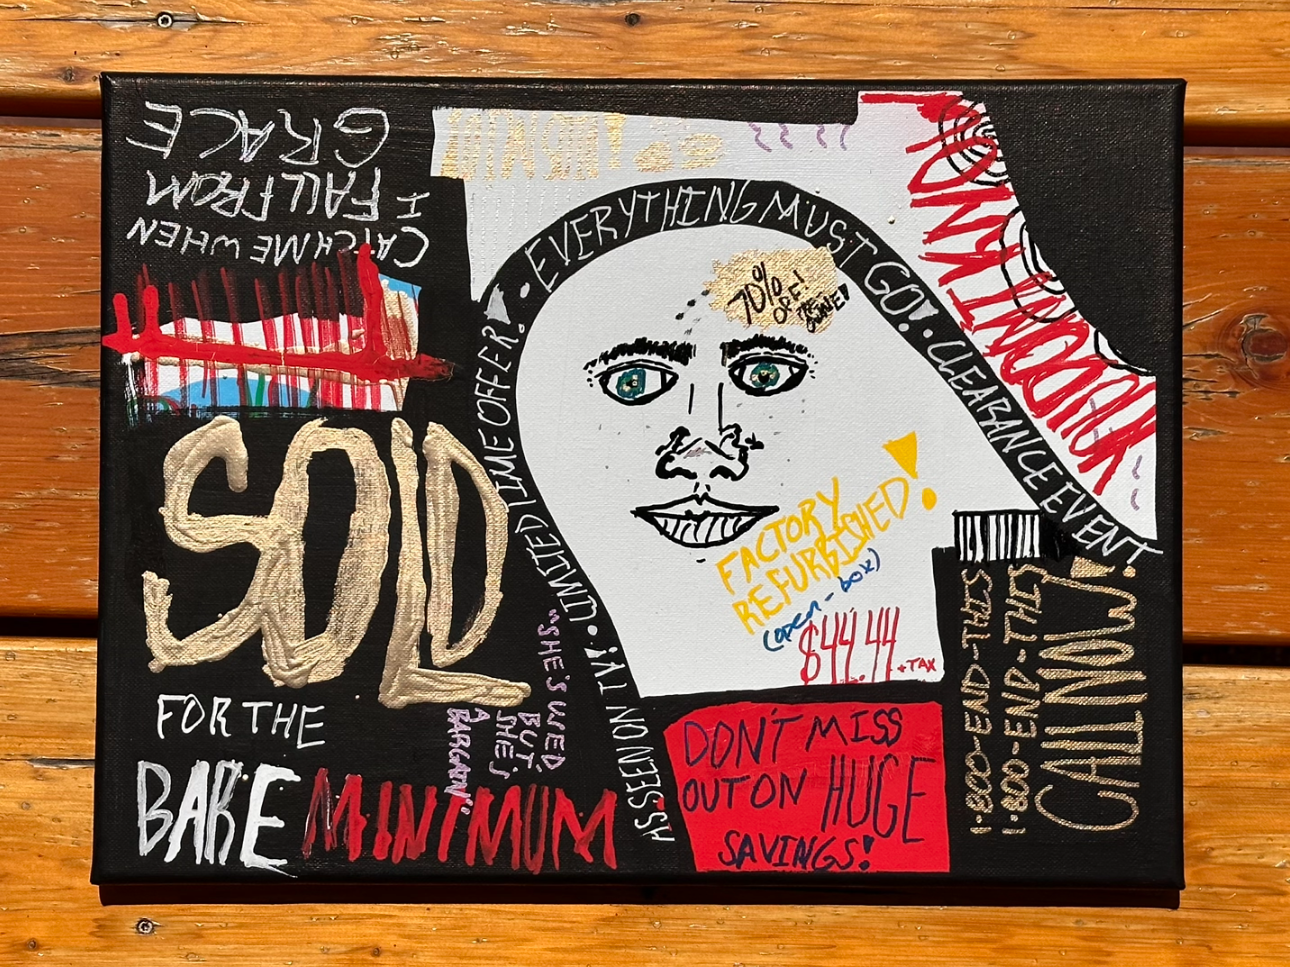 CATCH ME WHEN
I FALL FROM
GRACE
• EVERYTHING MUST GO! • CLEARANCE EVENT
AS SEEN ON TV! • LIMITED TIME OFFER!
70%
OFF!
SOLD
FOR THE
BARE MINIMUM
"SHE'S USED,
BUT SHE'S
A
BARGAIN"
FACTORY
REFURBISHED!
(open-box)
$44.44 +TAX
DON'T MISS
OUT ON HUGE
SAVINGS!
1-800-END-THIS
1-800-END-THIS
CALL NOW!